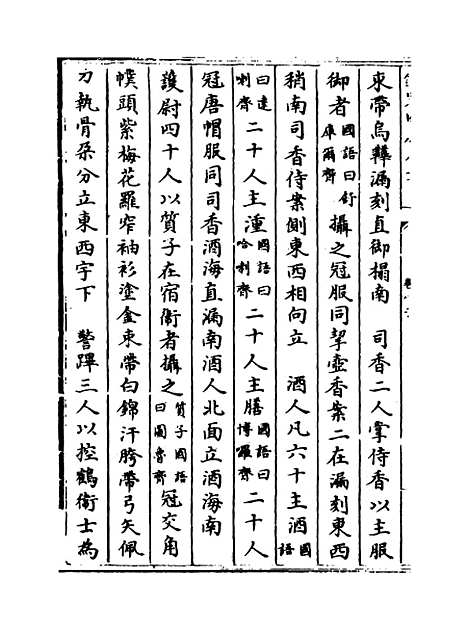 束帶烏鞾漏刻直御榻南　司香二人掌侍香以主服
御者國語曰舒庫爾齊攝之冠服同挈壺香案二在漏刻東西
稍南司香侍案側東西相向立　酒人凡六十主酒國語
曰達喇齊二十人主湩國語曰哈喇齊二十人主膳國語曰博囉齊二十人
冠唐帽服同司香酒海直漏南酒人北面立酒海南
護尉四十人以質子在宿衛者攝之質子國語曰圖魯齊冠交角
幞頭紫梅花羅窄袖衫塗金束帶白錦汗胯帶弓矢佩
刀執骨朵分立東西宇下　警蹕三人以控鶴衛士為